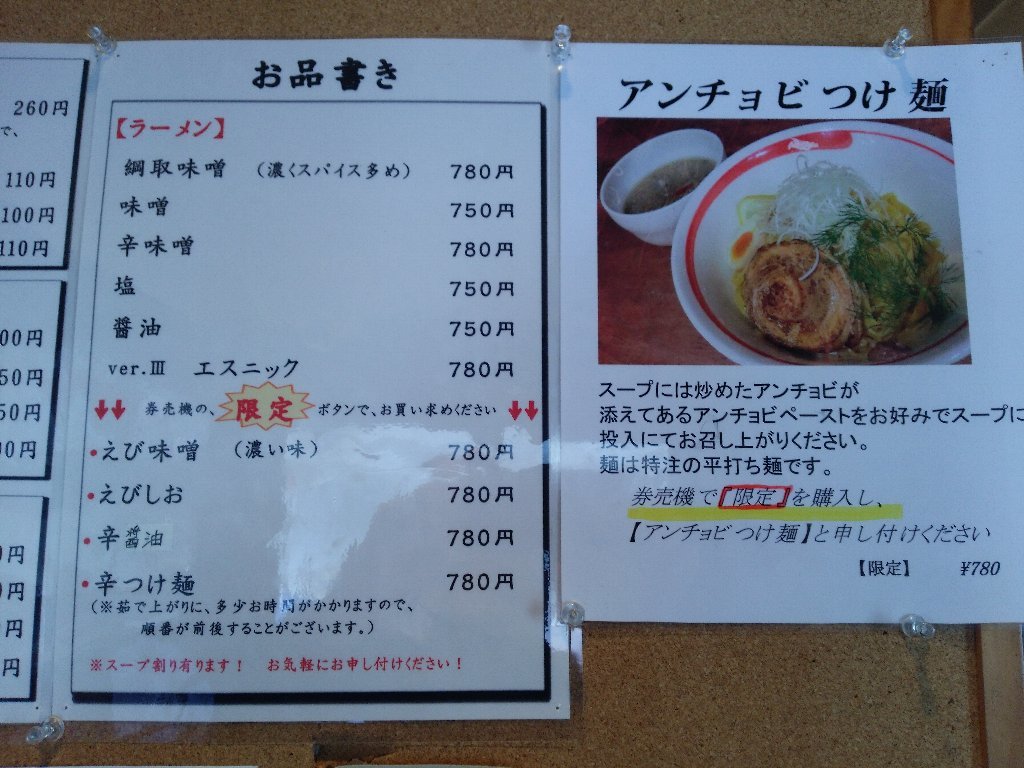 260円
で、
110円
100円
110円
00円
50円
50円
00円
円
円
円
円
お品書き
【ラーメン】
綱取味噌 （濃くスパイス多め） 780円
味噌 750円
辛味噌 780円
塩 750円
醤油 750円
ver.Ⅲ エスニック 780円
券売機の、限定ボタンで、お買い求めください
・えび味噌 （濃い味） 780円
・えびしお 780円
・辛醤油 780円
・辛つけ麺 780円
（※茹で上がりに、多少お時間がかかりますので、
順番が前後することがございます。）
※スープ割り有ります！ お気軽にお申し付けください！
アンチョビ つけ 麺
スープには炒めたアンチョビが
添えてあるアンチョビペーストをお好みでスープに
投入にてお召し上がりください。
麺は特注の平打ち麺です。
券売機で『限定』を購入し、
【アンチョビ つけ麺】と申し付けください
【限定】 ¥780